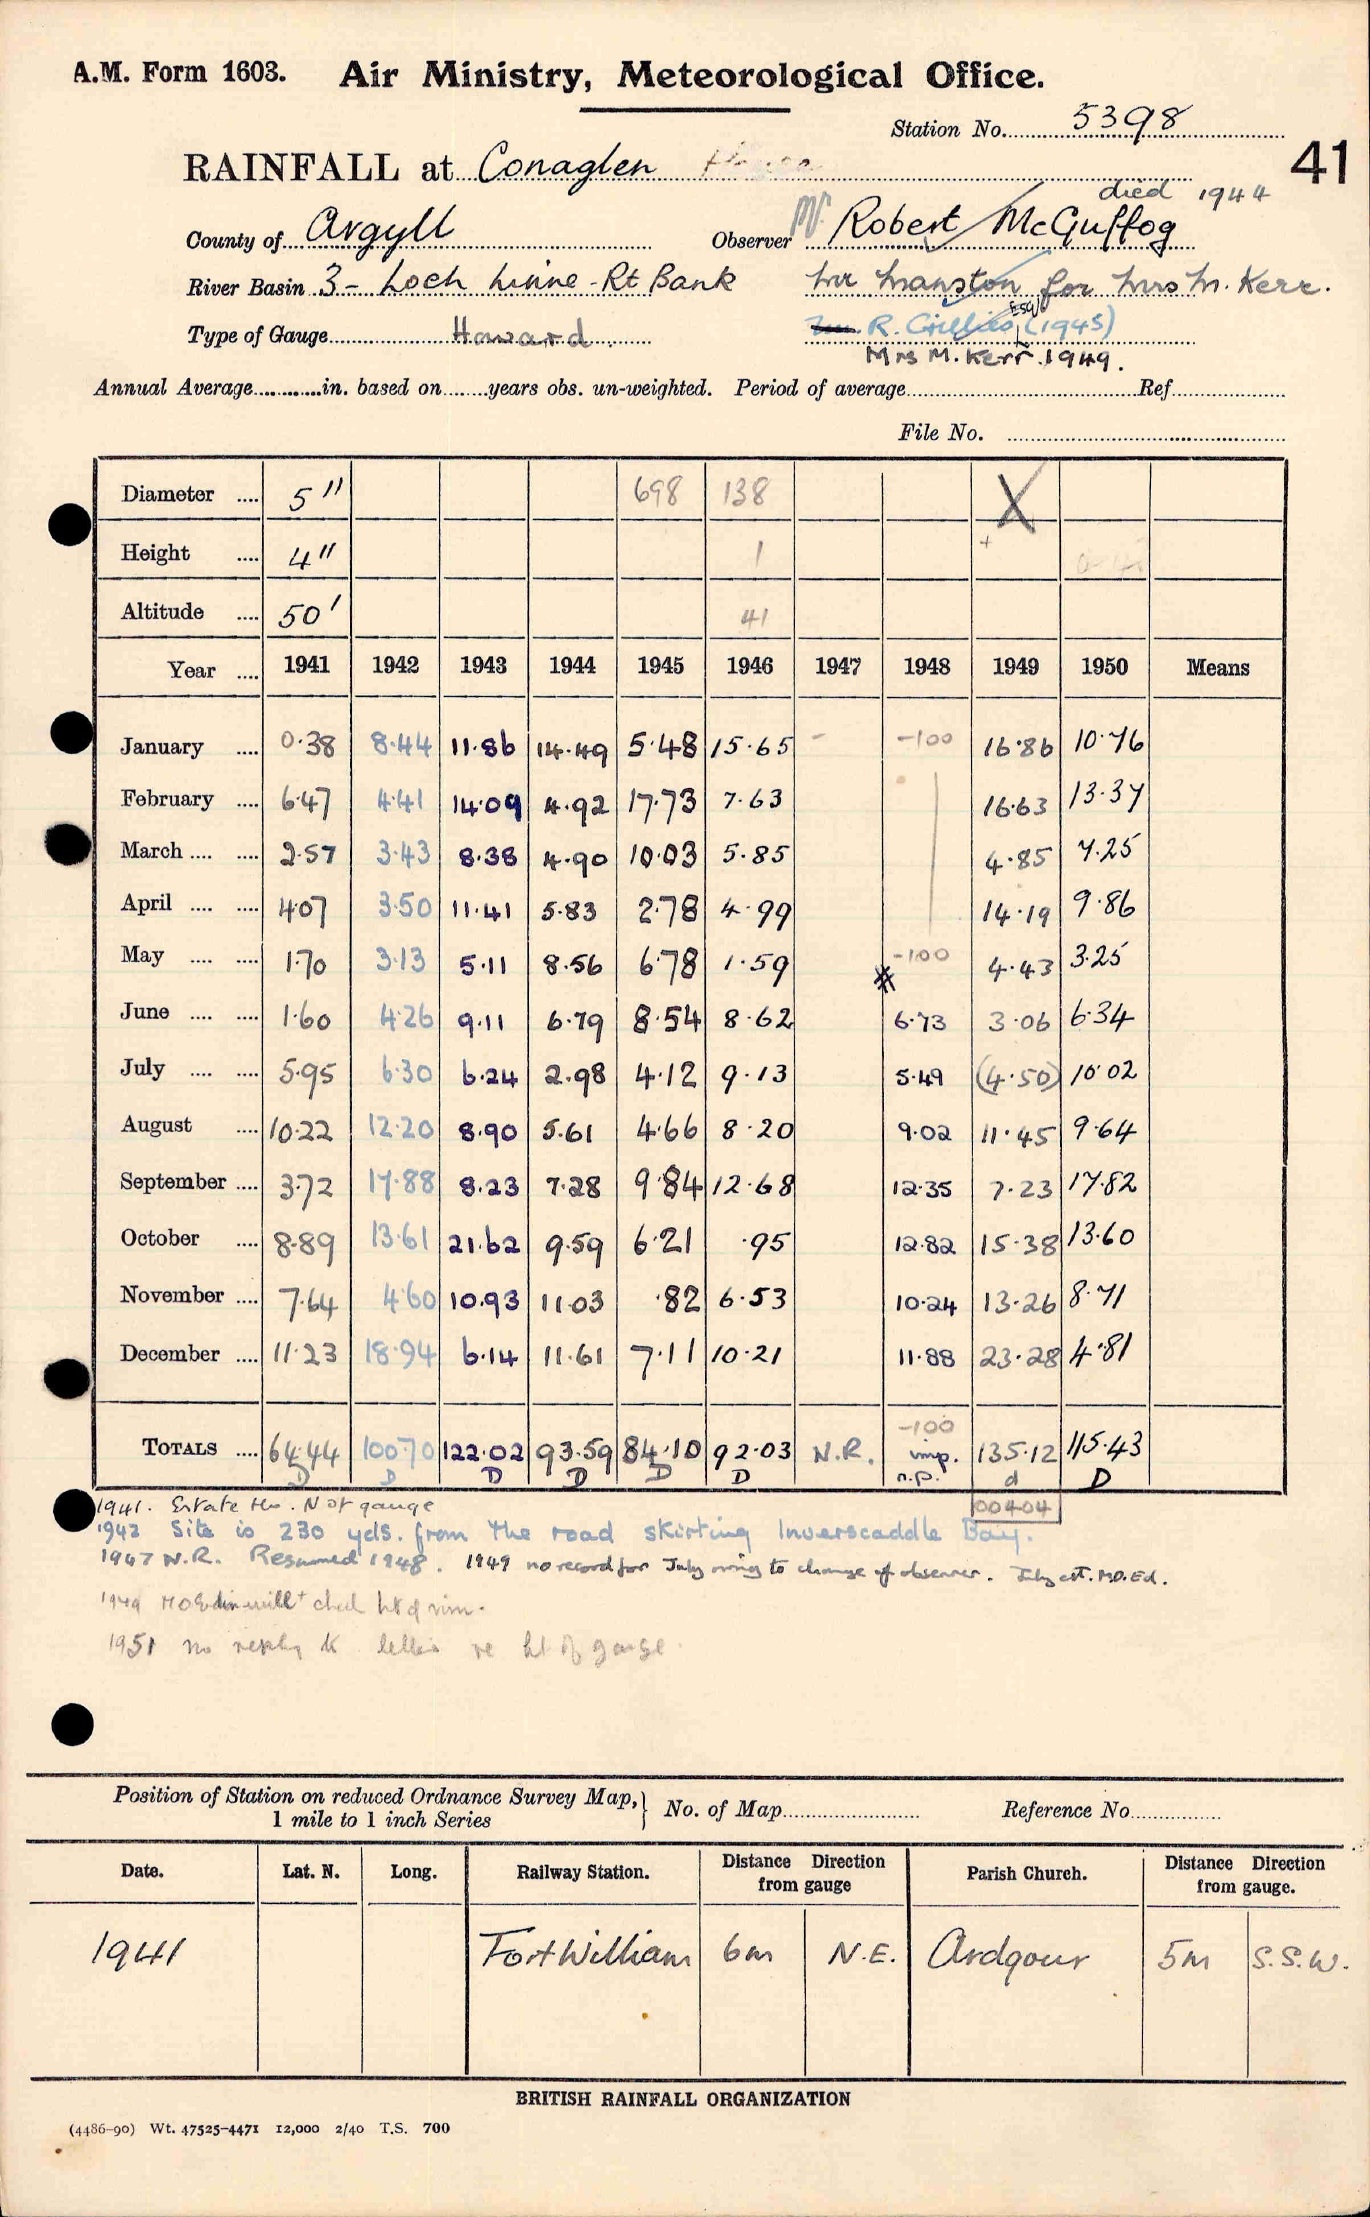 A.M. Form 1603. Air Ministry, Meteorological Office.
Station No. 5398
41
RAINFALL at Conaglen House
died 1944
County of Argyll Observer Mr Robert McGuffog
River Basin 3 - Loch Linne - Rt Bank Mr Manston for Mrs M. Kerr.
Type of Gauge Howard R. Gillies Esq (1945)
Mrs M. Kerr 1949.
Annual Average in. based on years obs. un-weighted. Period of average Ref
File No.
Diameter 5" 698 138 X
Height 4" 1 +
Altitude 50' 41
Year 1941 1942 1943 1944 1945 1946 1947 1948 1949 1950 Means
January 0.38 8.44 11.86 14.49 5.48 15.65 - -100 16.86 10.76
February 6.47 4.41 14.09 4.92 17.73 7.63 16.63 13.37
March 2.57 3.43 8.38 4.90 10.03 5.85 4.85 7.25
April 4.07 3.50 11.41 5.83 2.78 4.99 14.19 9.86
May 1.70 3.13 5.11 8.56 6.78 1.59 -100 4.43 3.25
June 1.60 4.26 9.11 6.79 8.54 8.62 # 6.73 3.06 6.34
July 5.95 6.30 6.24 2.98 4.12 9.13 5.49 (4.50) 10.02
August 10.22 12.20 8.90 5.61 4.66 8.20 9.02 11.45 9.64
September 3.72 17.88 8.23 7.28 9.84 12.68 12.35 7.23 17.82
October 8.89 13.61 21.62 9.59 6.21 .95 12.82 15.38 13.60
November 7.64 4.60 10.93 11.03 .82 6.53 10.24 13.26 8.71
December 11.23 18.94 6.14 11.61 7.11 10.21 11.88 23.28 4.81
-100
TOTALS 64.44 100.70 122.02 93.59 84.10 92.03 N.R. imp. 135.12 115.43
D D D D D D n.p. d D
00404
1941. Estate Ho. N of gauge
1942 Site is 230 yds. from the road skirting Inverscaddle Bay.
1947 N.R. Resumed 1948. 1949 no record for July owing to change of observer. July est. M.O. Ed.
1949 M O Edin will check ht of rim.
1951 no reply to letter re ht of gauge
Position of Station on reduced Ordnance Survey Map, No. of Map Reference No
1 mile to 1 inch Series
Date. Lat. N. Long. Railway Station. Distance Direction from gauge Parish Church. Distance Direction from gauge.
1941 Fort William 6m N.E. Ardgour 5m S.S.W.
BRITISH RAINFALL ORGANIZATION
(4486-90) Wt. 47525-4471 12,000 2/40 T.S. 700